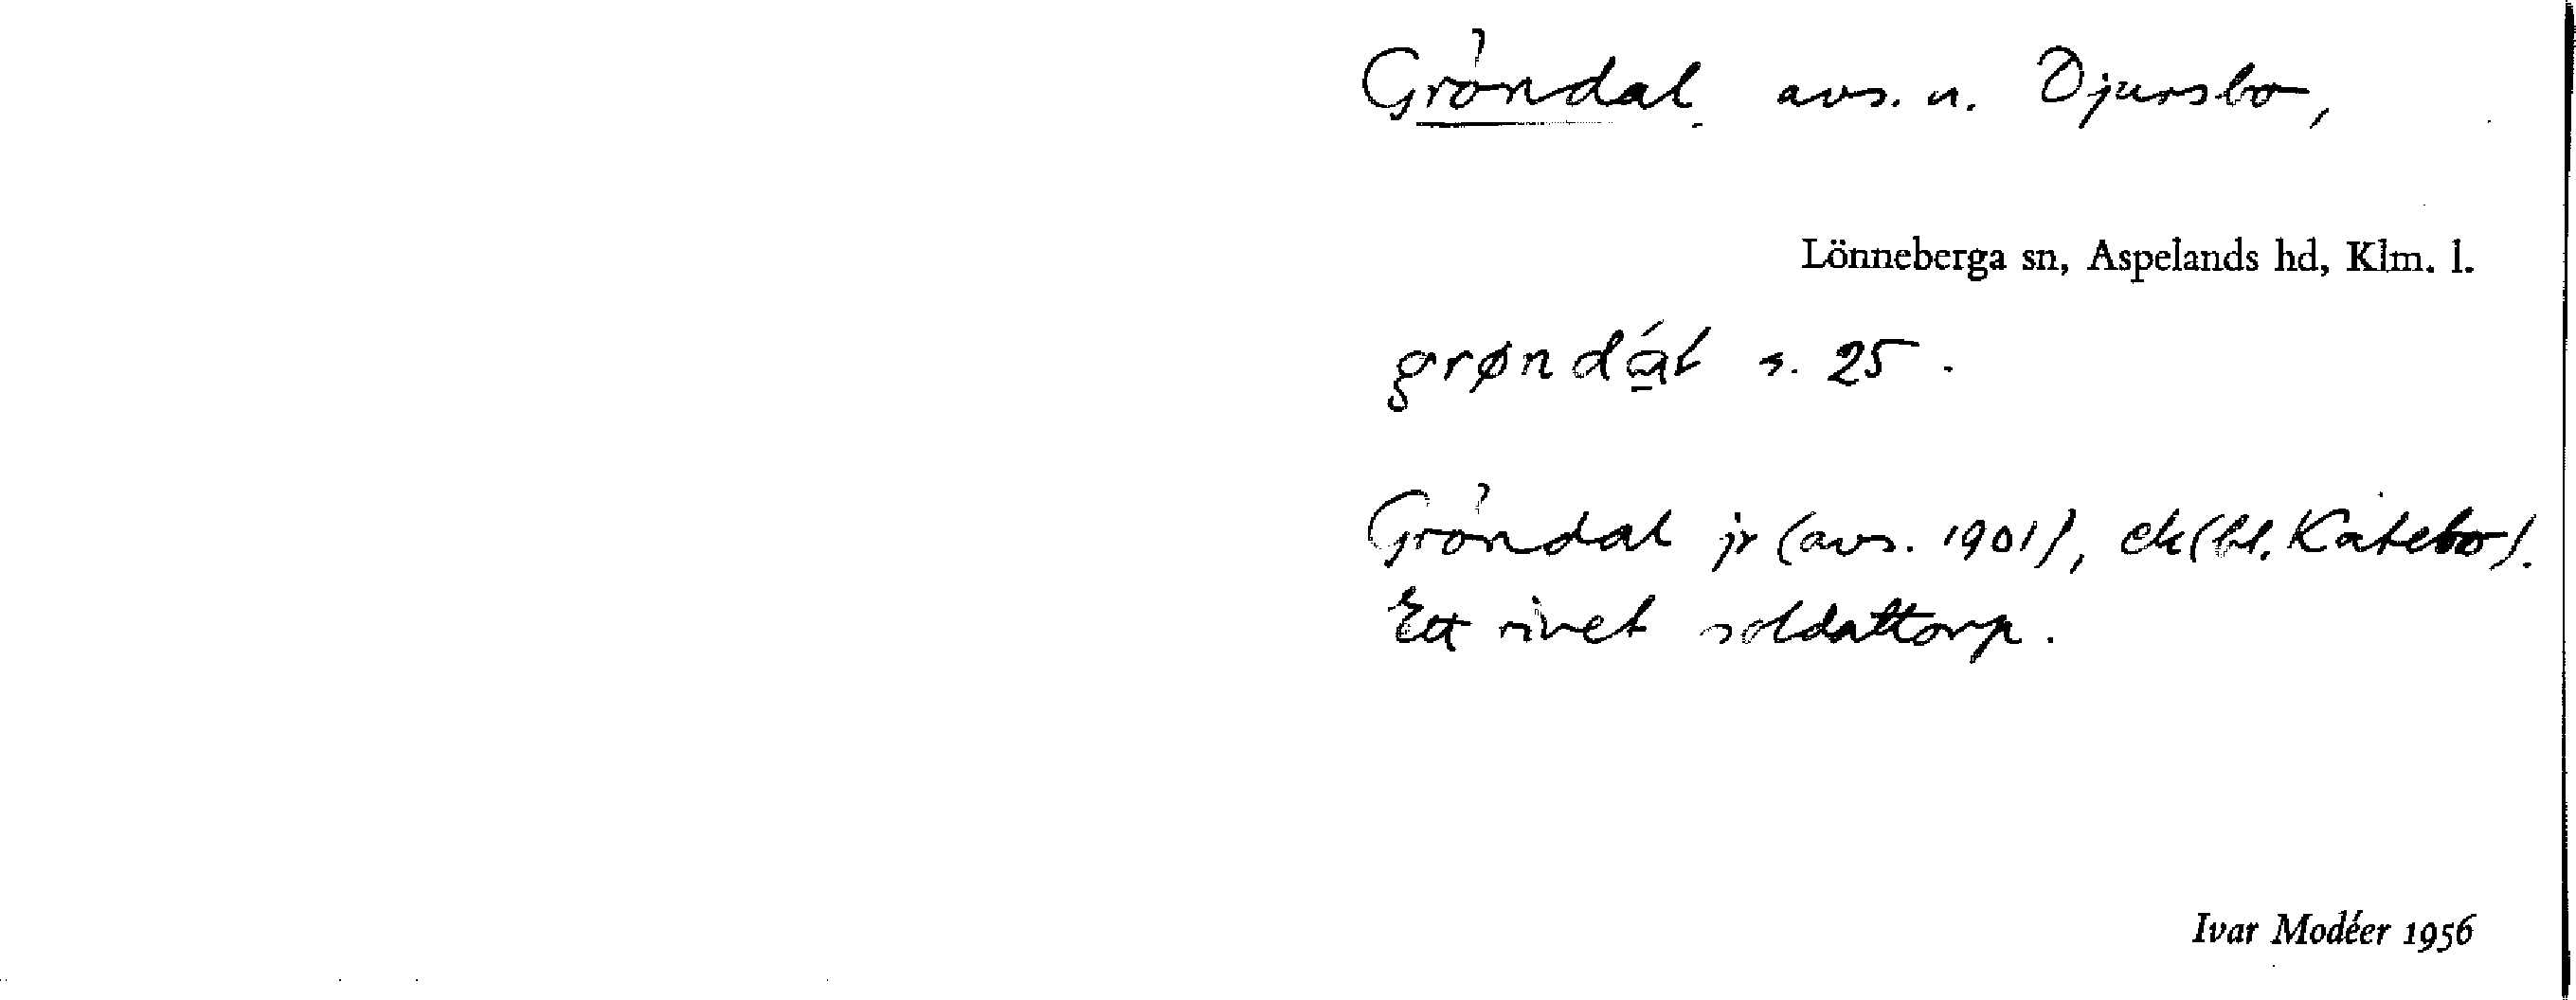 Gröndal avs. u. Djursbo,
Lönneberga sn, Aspelands hd, Klm. l.
grøndát s. 25.
Gröndal jr (avs. 1901), ek (bl. Katebo).
Ett rivet soldattorp.
Ivar Modéer 1956